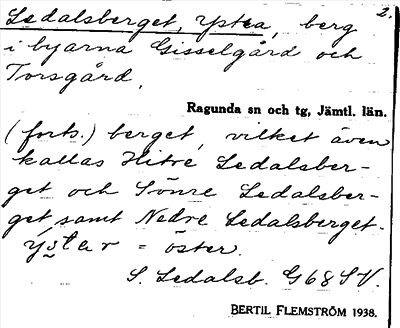 Ledalsberget, Ystra, berg 2.
i byarna Gisselgård och
Torsgård.
Ragunda sn och tg, Jämtl. län.
(forts.) berget, vilket även
kallas Hitre Ledalsber-
get och Sönre Ledalsber-
get samt Nedre Ledalsberget.
ystar = öster.
S. Ledalsb. G68SV.
BERTIL FLEMSTRÖM 1938.